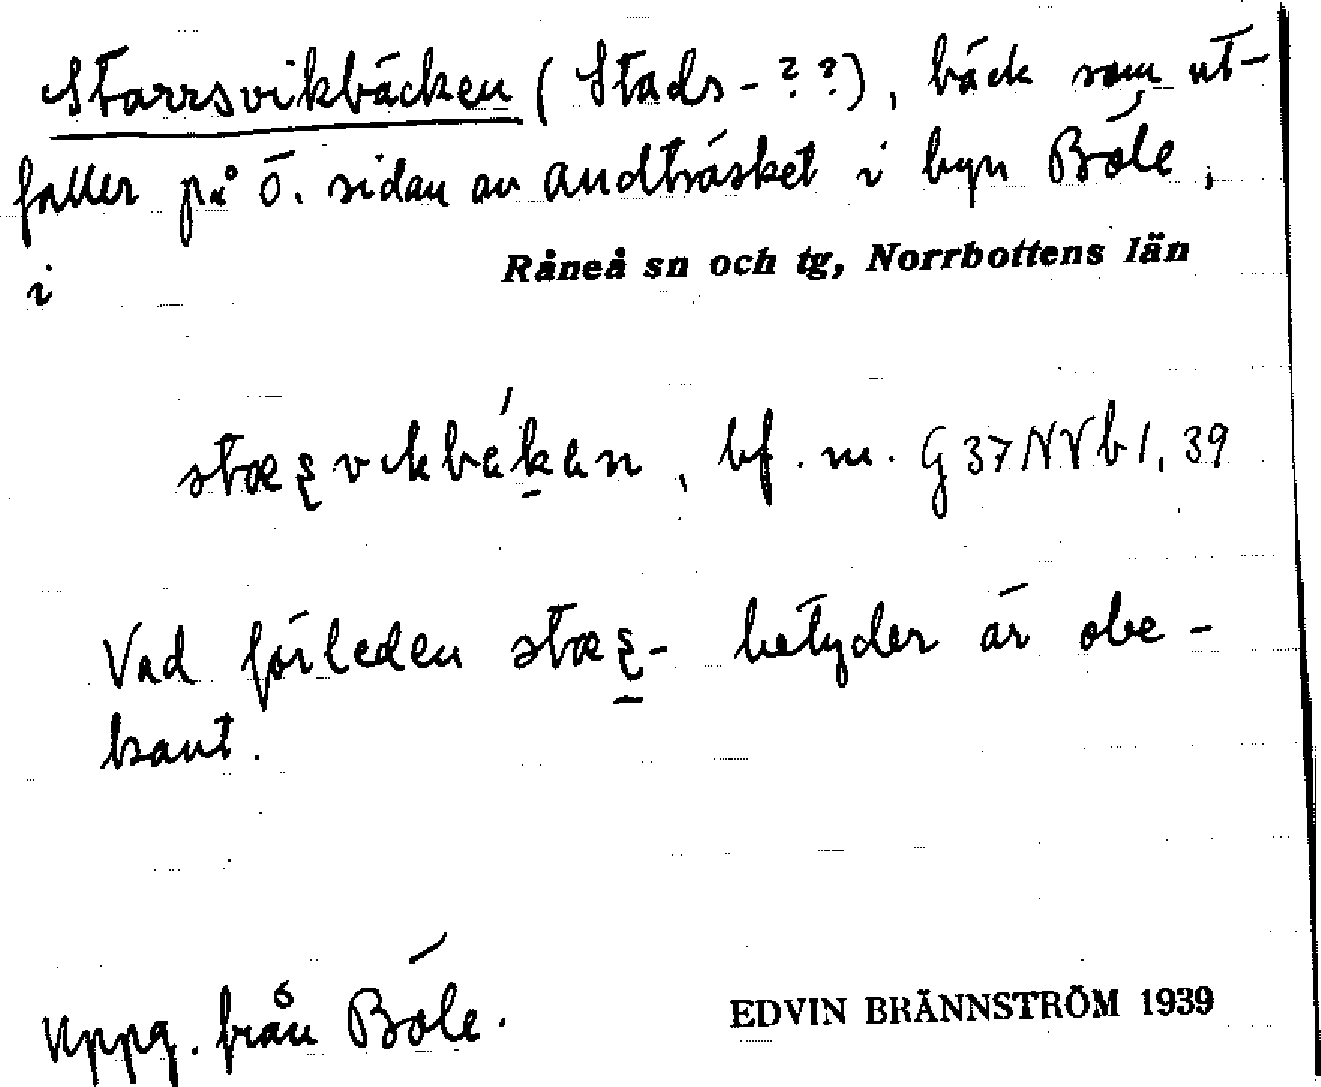 Starrsvikbäcken (Stads-??), bäck som ut-
faller på Ö. sidan av Andträsket i byn Böle,
i Råneå sn och tg, Norrbottens län
bf. m. G37NVb1, 39
Vad förleden betyder är obe-
kant.
Uppg. från Böle. EDVIN BRÄNNSTRÖM 1939